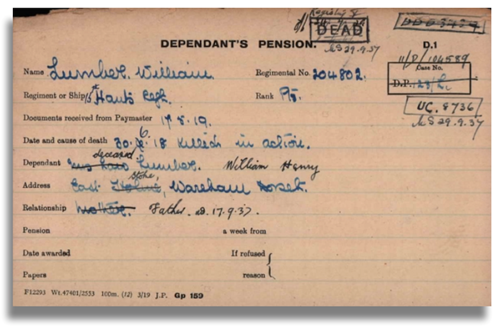 DEAD
29.9.37
DEPENDANT'S PENSION.
D.1
11/D/104589
Name Lumber. William
Regimental No. 204802.
Case No.
Regiment or Ship Hants Regt.
Rank Pte.
UC. 8736
29.9.37
Documents received from Paymaster 17.8.19.
Date and cause of death 30.6.18 Killed in action.
deceased
Dependant Lumber. William Henry
Stoke
Address East Wareham Dorset.
Relationship Mother. Father. D. 17.9.37.
Pension a week from
Date awarded If refused
Papers reason
F12293 Wt.47401/2553 100m. (12) 3/19 J.P. Gp 159